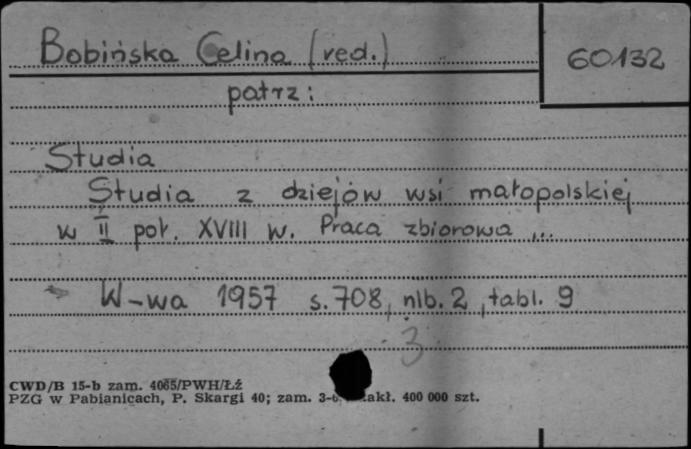 Bobińska Celina (red.)
60132
patrz:
Studia
Studia z dziejów wsi małopolskiej
w II poł. XVIII w. Praca zbiorowa ...
W-wa 1957 s. 708, nlb. 2, tabl. 9
3
CWD/B 15-b zam. 4065/PWH/Łż
PZG w Pabianicach, P. Skargi 40; zam. akł. 400 000 szt.